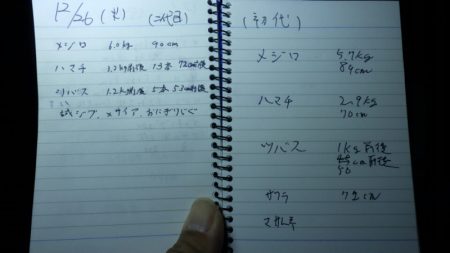 12/26 (火) (二代目)
メジロ 6.0kg 90cm
ハマチ 3.2kg前後 13本 70cm前後
ツバス 1.2kg前後 5本 50cm前後
ジグ、メタイア、おにぎりジグ
(初代)
メジロ 5.7kg
84cm
ハマチ 2.9kg
70cm
ツバス 1kg前後
45cm前後
50
サワラ 72cm